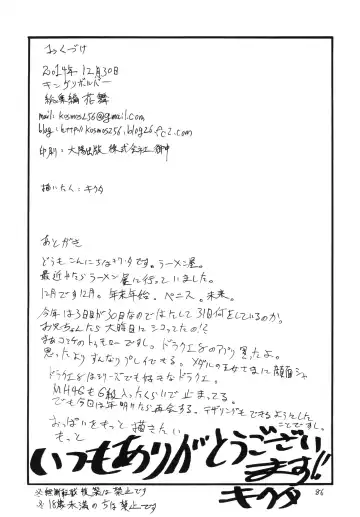 おくづけ
2014年12月30日
キングリボルバー
総集編 花舞
mail: kosmos256@gmail.com
blog: http://kosmos256.blog26.fc2.com
印刷: 大陽出版 株式会社 御中
描いたん: キクタ
あとがき
どうもこんにちはキクタです。ラーメン屋。
最近やたらラーメン屋に行っていました。
12月です12月。年末年始。ペニス。未来。
今年は3日目が30日なのではたして31日何をしているのか。
お兄ちゃんたら大晦日にシコってたの!?
ドラクエ8のアプリ買たよ。
思ったよりすんなりプレイできる。メダル
ドラクエ8はシリーズでも好きなドラクエ。
MH4Gも6組入ったくらいで止まってる。
でも今日は年明けたら再会する。デザリングもできるようにした
ことですし。
おっぱいをもっと描きたい
もっと
いつもありがとうござい
ます!!
キクタ
※無断転載複製は禁止です
※18歳未満の方は禁止です
86